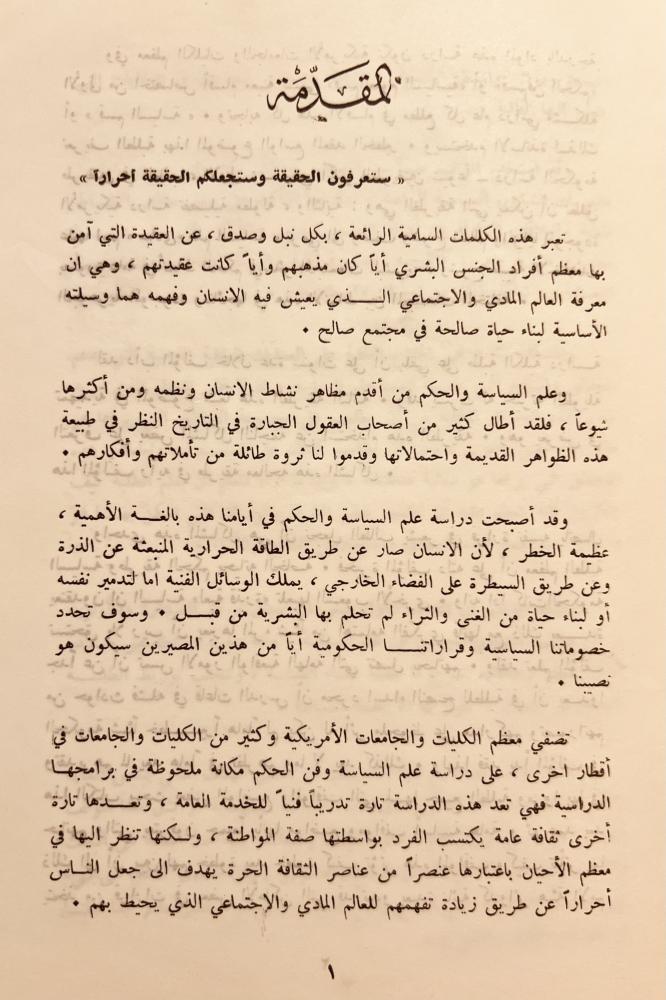 المقدّمة
« ستعرفون الحقيقة وستجعلكم الحقيقة أحراراً »
تعبر هذه الكلمات السامية الرائعة ، بكل نبل وصدق ، عن العقيدة التي آمن
بها معظم أفراد الجنس البشري أياً كان مذهبهم وأياً كانت عقيدتهم ، وهي ان
معرفة العالم المادي والاجتماعي الـــذي يعيش فيه الانسان وفهمه هما وسيلته
الأساسية لبناء حياة صالحة في مجتمع صالح .
وعلم السياسة والحكم من أقدم مظاهر نشاط الانسان ونظمه ومن أكثرها
شيوعاً ، فلقد أطال كثير من أصحاب العقول الجبارة في التاريخ النظر في طبيعة
هذه الظواهر القديمة واحتمالاتها وقدموا لنا ثروة طائلة من تأملاتهم وأفكارهم .
وقد أصبحت دراسة علم السياسة والحكم في أيامنا هذه بالغــة الأهمية ،
عظيمة الخطر ، لأن الانسان صار عن طريق الطاقة الحرارية المنبعثة عن الذرة
وعن طريق السيطرة على الفضاء الخارجي ، يملك الوسائل الفنية اما لتدمير نفسه
أو لبناء حياة من الغنى والثراء لم تحلم بها البشرية من قبــل . وسوف تحدد
خصوماتنا السياسية وقراراتنـــا الحكومية أياً من هذين المصيرين سيكون هو
نصيبنا .
تضفي معظم الكليات والجامعات الأمريكية وكثير من الكليات والجامعات في
أقطار اخرى ، على دراسة علم السياسة وفن الحكم مكانة ملحوظة في برامجهـا
الدراسية فهي تعد هذه الدراسة تارة تدريباً فنياً للخدمة العامة ، وتعـــدها تارة
أخرى ثقافة عامة يكتسب الفرد بواسطتها صفة المواطنة ، ولـكنها تنظر اليها في
معظم الأحيان باعتبارها عنصراً من عناصر الثقافة الحرة يهدف الى جعل النـاس
أحراراً عن طريق زيادة تفهمهم للعالم المادي والإجتماعي الذي يحيط بهم .
١